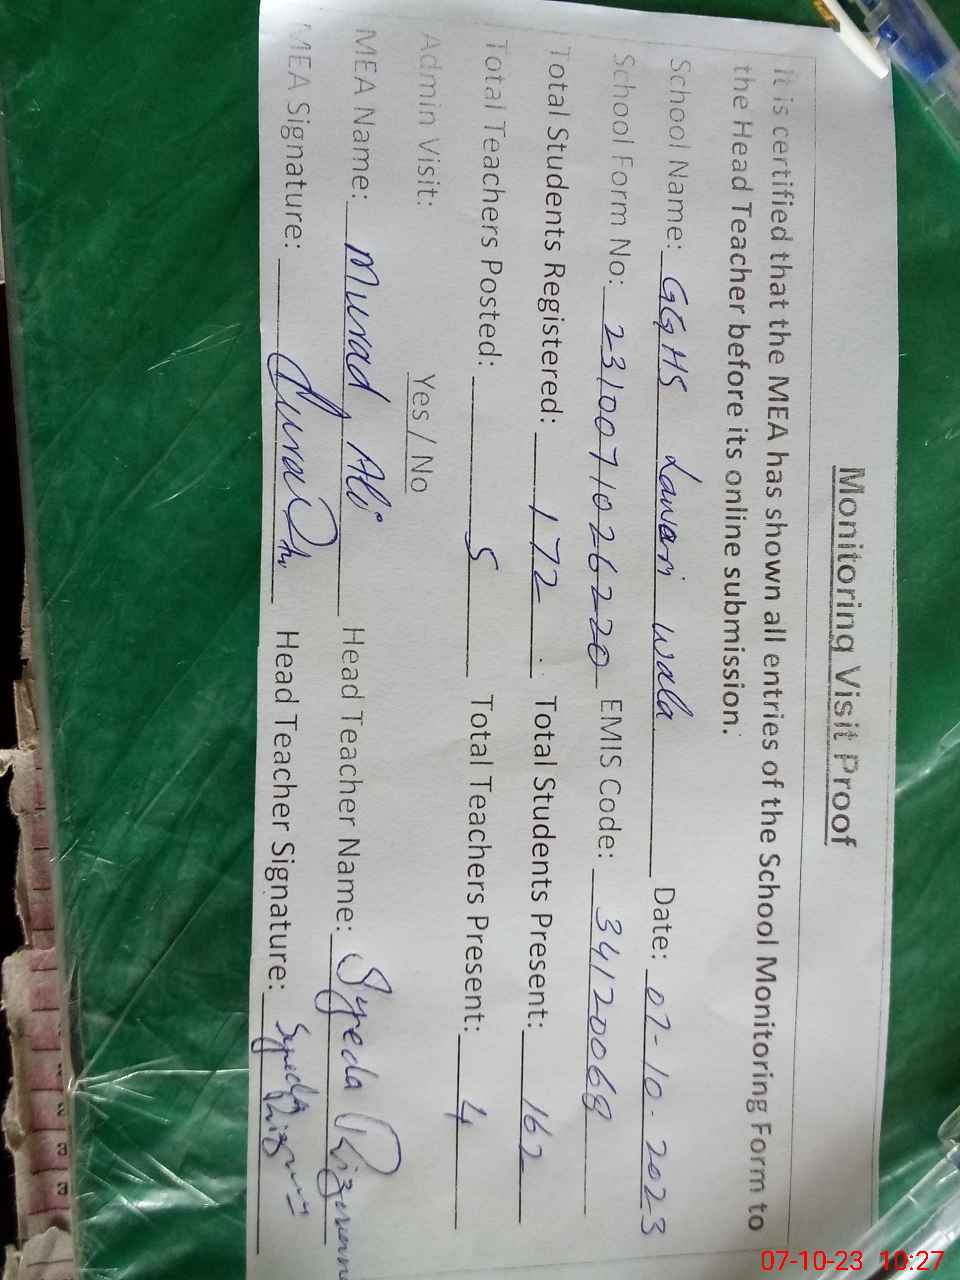 Monitoring Visit Proof
It is certified that the MEA has shown all entries of the School Monitoring Form to
the Head Teacher before its online submission.
School Name: GGHS Lawari Wala Date: 07-10-2023
School Form No: 2310071026220 EMIS Code: 34120068
Total Students Registered: 172 Total Students Present: 162
Total Teachers Posted: 5 Total Teachers Present: 4
Admin Visit: Yes / No
MEA Name: Murad Ali Head Teacher Name: Syeda
MEA Signature: Head Teacher Signature: Syeda
07-10-23 10:27